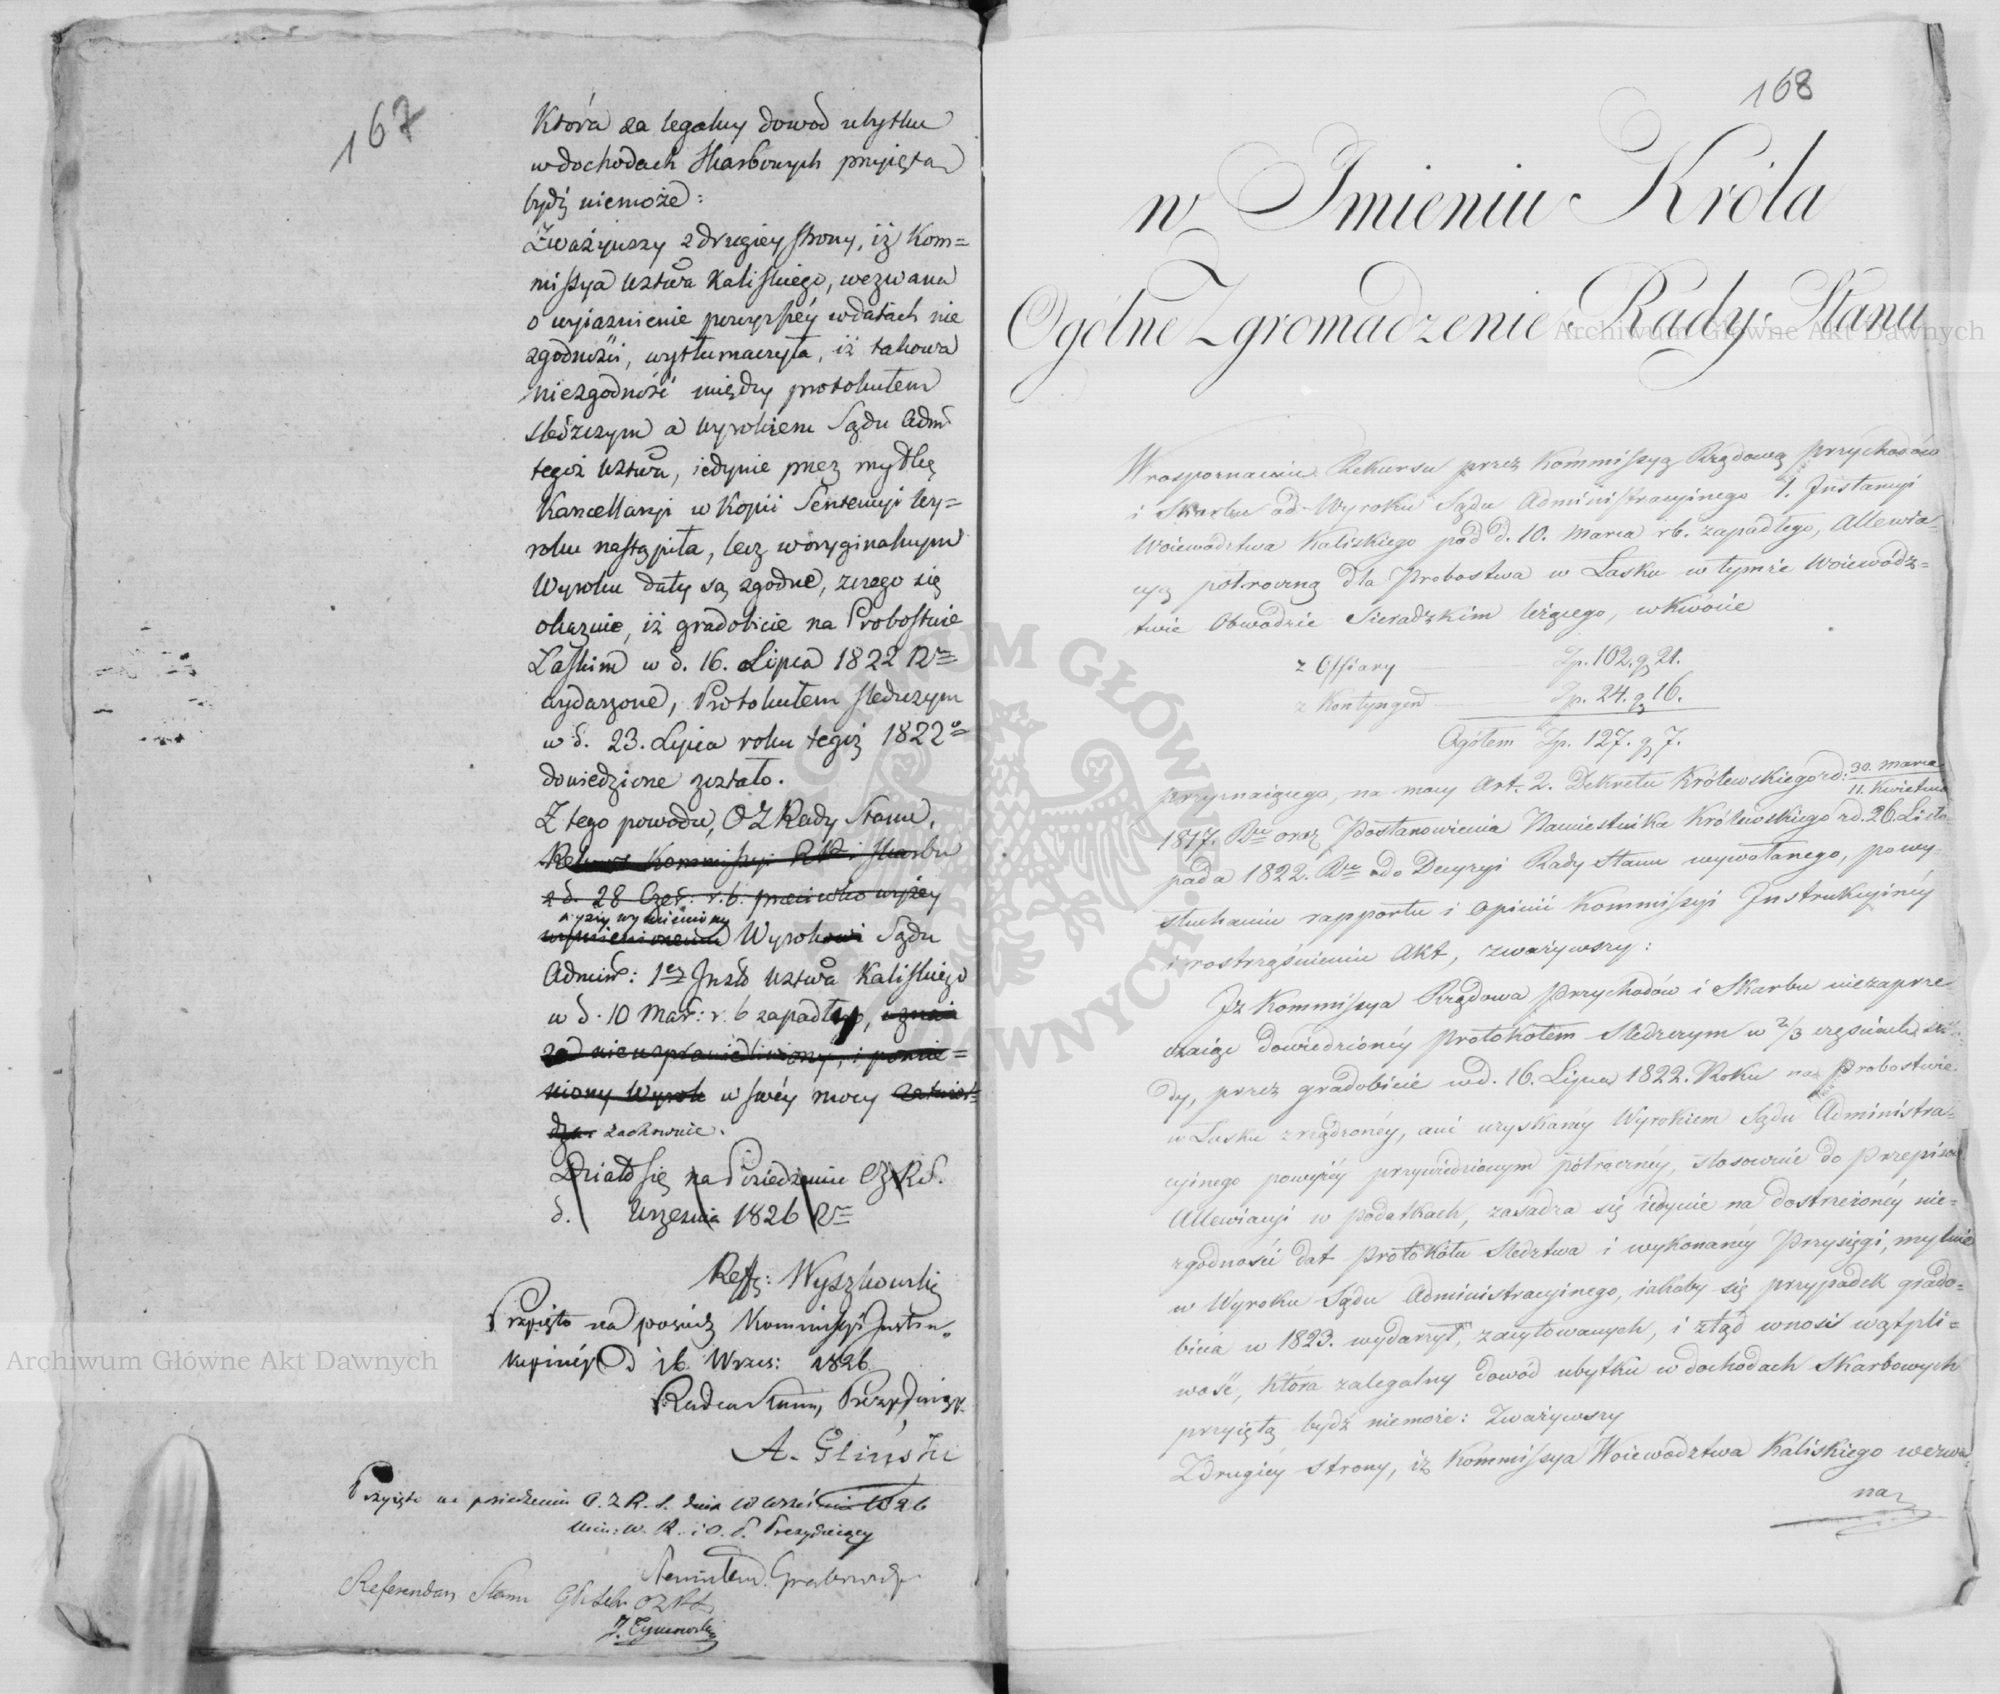 167
Która za legalny dowód ubytku
w dochodach Skarbowych przyięta
bydź niemoże:
Zważywszy z drugiey strony, iż Kom=
missya Wztwa Kaliskiego, wezwana
o wyiaśnienie powyższéy w datach nie
zgodności, wytłumaczyła, iż takowa
niezgodność między protokułem
śledczym a wyrokiem Sądu Adm
tegoż Wztwa, iedynie przez myłkę
Kancellaryi w Kopii Sentencyi Wy=
roku nastąpiła, lecz w oryginalnym
Wyroku daty są zgodne, z czego się
okazuie, iż gradobicie na Probostwie
Łaskim w d. 16. Lipca 1822 R
wydarzone, Protokułem śledczym
w d. 23. Lipca roku tegoż 1822
dowiedzione zostało.
Z tego powodu, OZ Rady Stanu,
Rekurs Kommissyi RP i Skarbu
z d. 28 Czer: r.b. przeciwko wyżey
wyżey wymieniony
wspomnionemu Wyrokowi Sądu
Admin: 1ey Inst Wztwa Kaliskiego
w d. 10 Mar: r. b zapadły, uznaie
za nieusprawiedliwiony, i pomie=
niony Wyrok w swéy mocy zatwier=
dza zachowuie.
Działo się na Posiedzeniu OZRS.
d. Września 1826 R
Reff: Wyszkowski
Przyięto na posiedz Kommissyi Instru=
kcyinéy d 16 Wrzes: 1826
Radca Stanu, Prezyduiący
A. Gliński
Przyięto na posiedzeniu O. Z R. S. dnia Września 1826
Min: W. R. i O. P. Prezyduiący
Stanisław Grabowski
Referendarz Stanu
J. Tymowski
168
w Imieniu Króla
Ogólne Zgromadzenie Rady Stanu
W rospoznaniu Rekursu przez Kommissyą Rządową Przychodów
i Skarbu od Wyroku Sądu Administracyinego 1. Instancyi
Woiewództwa Kaliskiego pod d. 10. Marca rb. zapadłego, Allewia=
cyą półroczną dla Probostwa w Łasku w tymże Woiewódz=
twie Obwodzie Sieradzkim leżącego, w kwocie
z Offiary Zp. 102. g 21.
z Kontyngens Zp. 24. g 16.
Ogółem Zp. 127. g 7.
przyznaiącego, na mocy Art. 2. Dekretu Królewskiego z d: 30. Marca
11. Kwietnia
1817. R oraz Postanowienia Namiestnika Królewskiego z d. 26. Listo=
pada 1822. R do Decyzyi Rady Stanu wywołanego, po wy=
słuchaniu rapportu i Opinii Kommissyi Instrukcyinéy
i rostrząśnieniu Akt, zważywszy:
Iż Kommissya Rządowa Przychodów i Skarbu niezaprze=
czaiąc dowiedzionéy Protokółem śledczym w 2/3 częściach szko=
dy, przez gradobicie w d. 16. Lipca 1822. Roku na Probostwie
w Łasku zrządzonéy, ani uzyskanéy Wyrokiem Sądu Administra=
cyinego powyżéy przywiedzionym półrocznéy, stosownie do Przepisów
Allewiacyi w Podatkach, zasadza się iedynie na dostrzeżonéy nie=
zgodności dat Protokółu śledztwa i wykonanéy Przysięgi, mylnie
w Wyroku Sądu Administracyinego, iakoby się przypadek grado=
bicia w 1823. wydarzył, zacytowanych, i ztąd wnosi wątpli=
wość, Która za legalny dowód ubytku w dochodach Skarbowych
przyiętą bydź niemoże: Zważywszy
Z drugiéy strony, iż Kommissya Woiewództwa Kaliskiego wezwa=
na
Archiwum Główne Akt Dawnych
Archiwum Główne Akt Dawnych
ARCHIWUM GŁÓWNE AKT DAWNYCH